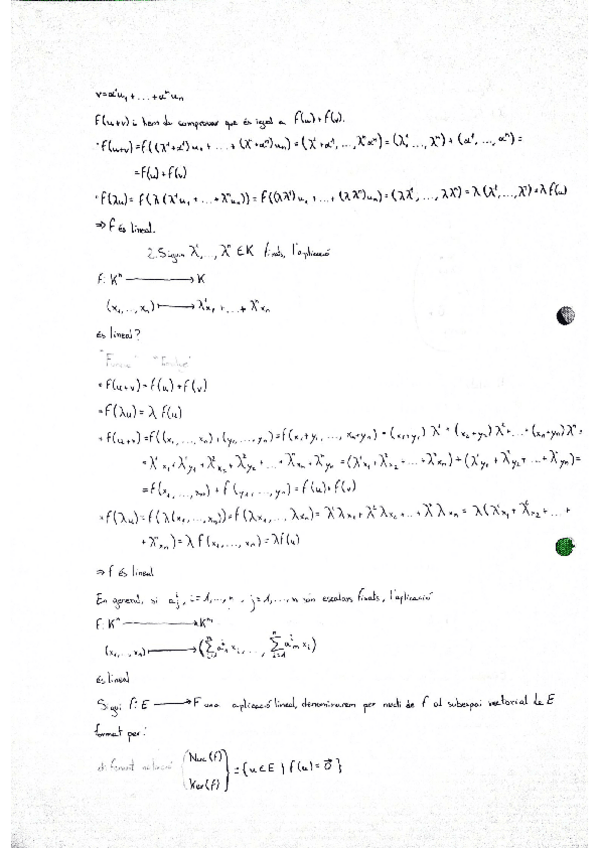 v=α¹u₁+...+αⁿuₙ
f(u+v) i hem de comprovar que és igual a f(u)+f(v).
·f(u+v)=f((λ¹+α¹)u₁+...+(λⁿ+αⁿ)uₙ)=(λ¹+α¹,...,λⁿ+αⁿ)=(λ¹,...,λⁿ)+(α¹,...,αⁿ)=
=f(u)+f(v)
·f(λu)=f(λ(λ¹u₁+...+λⁿuₙ))=f((λλ¹)u₁+...+(λλⁿ)uₙ)=(λλ¹,...,λλⁿ)=λ(λ¹,...,λⁿ)=λf(u)
⇒ f és lineal.
2. Siguin λ¹,...,λⁿ ∈ K fixats, l'aplicació
f: Kⁿ ⟶ K
(x₁,...,xₙ) ⟼ λ¹x₁+...+λⁿxₙ
és lineal?
·f(u+v)=f(u)+f(v)
·f(λu)=λf(u)
·f(u+v)=f((x₁,...,xₙ)+(y₁,...,yₙ))=f(x₁+y₁,...,xₙ+yₙ)=(x₁+y₁)λ¹+(x₂+y₂)λ²+...+(xₙ+yₙ)λⁿ=
=λ¹x₁+λ¹y₁+λ²x₂+λ²y₂+...+λⁿxₙ+λⁿyₙ=(λ¹x₁+λ²x₂+...+λⁿxₙ)+(λ¹y₁+λ²y₂+...+λⁿyₙ)=
=f(x₁,...,xₙ)+f(y₁,...,yₙ)=f(u)+f(v)
·f(λu)=f(λ(x₁,...,xₙ))=f(λx₁,...,λxₙ)=λ¹λx₁+λ²λx₂+...+λⁿλxₙ=λ(λ¹x₁+λ²x₂+...+
+λⁿxₙ)=λf(x₁,...,xₙ)=λf(u)
⇒ f és lineal
En general, si aⁱⱼ, i=1,...,n, j=1,...,m són escalars fixats, l'aplicació
f: Kⁿ ⟶ Kᵐ
(x₁,...,xₙ) ⟼ (∑ⁿᵢ₌₁ aⁱ₁xᵢ,...,∑ⁿᵢ₌₁ aⁱₘxᵢ)
és lineal
Sigui f: E ⟶ F una aplicació lineal, denominarem per nucli de f al subespai vectorial de E
format per:
diferent notació {Nuc(f) Ker(f)} = {u∈E | f(u)=0⃗}